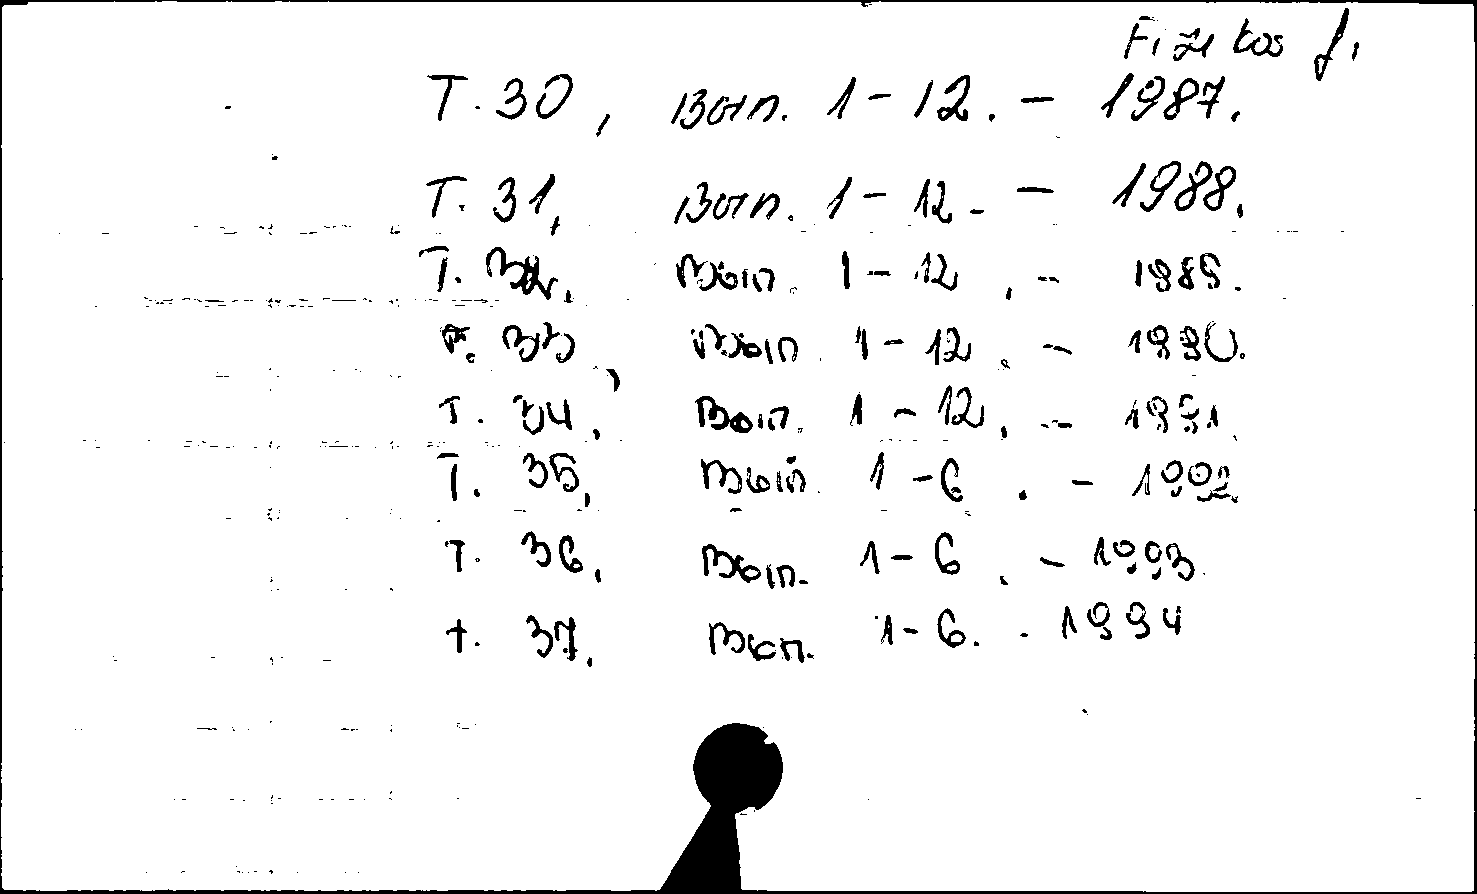 T. 30, вып. 1-12. - 1987.
T. 31, вып. 1-12. - 1988.
T. 32, вып. 1-12. - 1989.
T. 33, вып. 1-12. - 1990.
T. 34, вып. 1-12. - 1991.
T. 35, вып. 1-6. - 1992.
T. 36, вып. 1-6. - 1993.
т. 37, вып. 1-6. - 1994